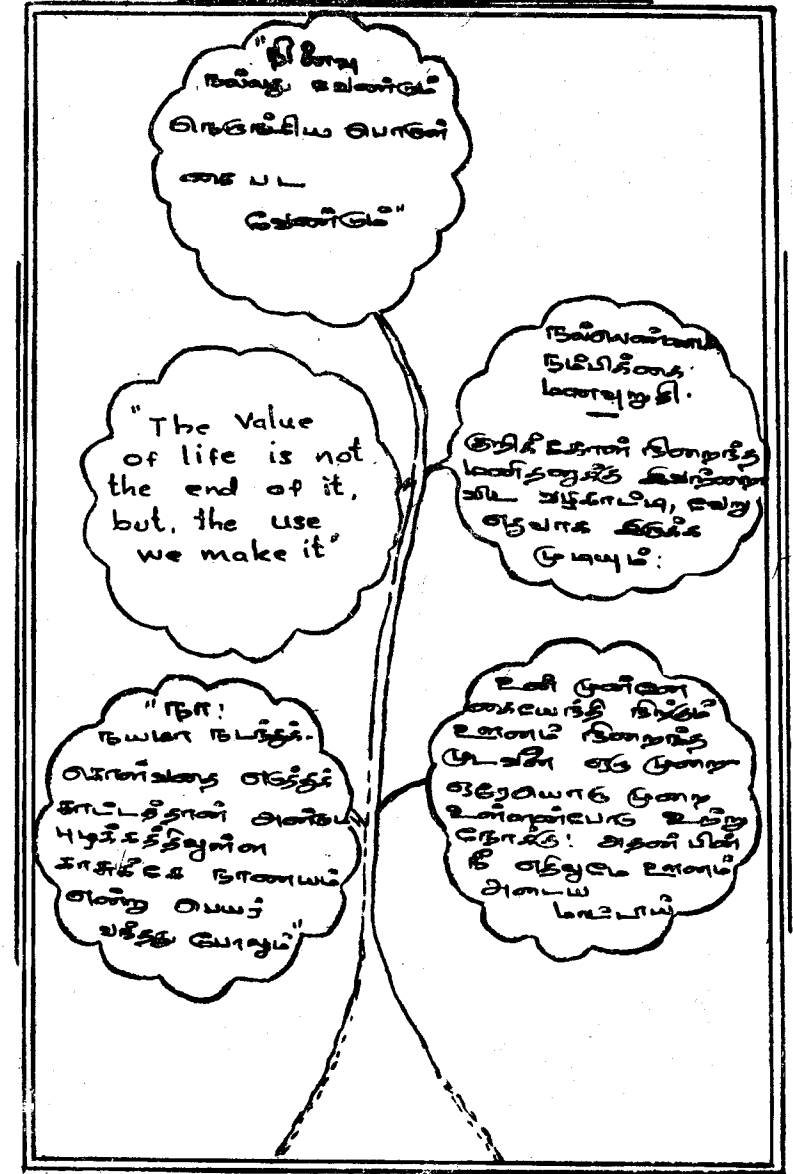 "நினைவு
நல்லது வேண்டும்
நெருங்கிய பொருள்
கை பட
வேண்டும்"
"The Value
of life is not
the end of it,
but, the use
we make it"
நல்லெண்ணம்
நம்பிக்கை.
மனவுறுதி.
குறிக்கோள் நிறைந்த
மனிதனுக்கு இவற்றை
விட வழிகாட்டி, வேறு
எதுவாக இருக்க
முடியும்:
"நா!
நயமா நடந்துக்-
கொள்வதை எடுத்துக்
காட்டத்தான் அன்றாட
புழக்கத்திலுள்ள
காசுக்கே நாணயம்
என்று பெயர்
வந்தது போலும்"
உன் முன்னே
கையேந்தி நிற்கும்
ஊனம் நிறைந்த
முடவனை ஒரு முறை
ஒரேயொரு முறை
உள்ளன்போடு உற்று
நோக்கு! அதன் பின்
நீ எதிலுமே ஊனம்
அடைய
மாட்டாய்